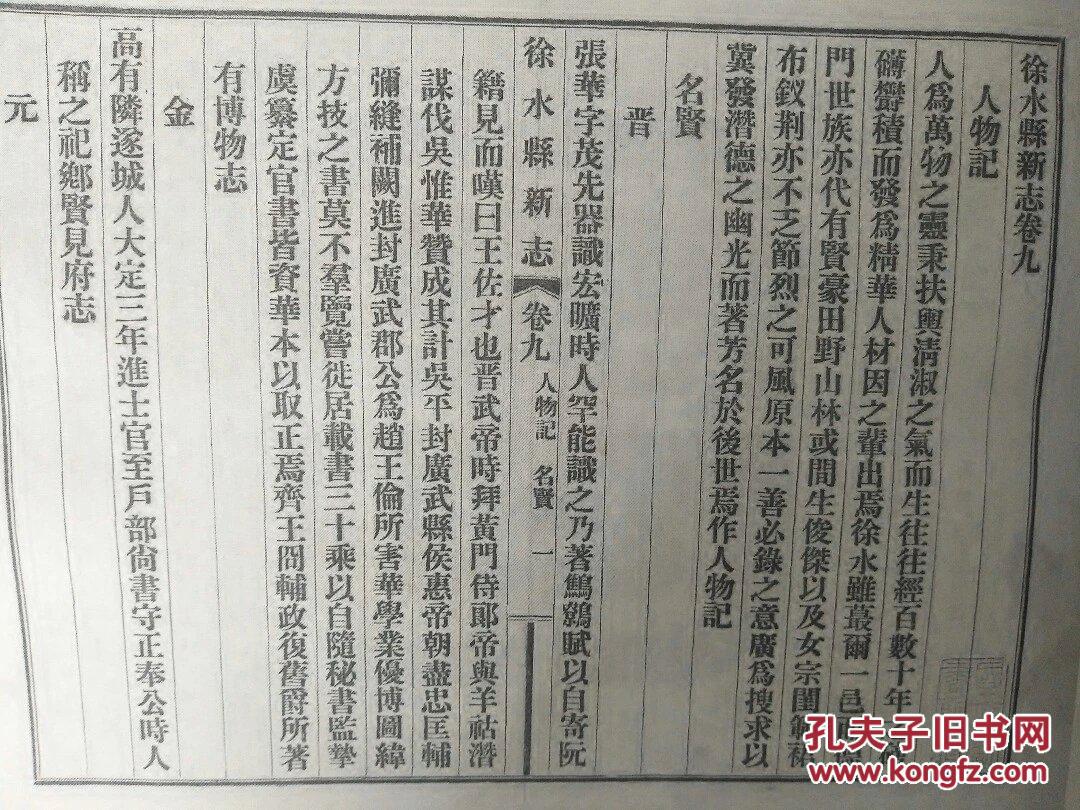 徐水縣新志卷九
人物記
人爲萬物之靈秉扶輿淸淑之氣而生往往經百數十年
礴鬱積而發爲精華人材因之輩出焉徐水雖蕞爾一邑
門世族亦代有賢豪田野山林或間生俊傑以及女宗閨範裙
布釵荆亦不乏節烈之可風原本一善必錄之意廣爲搜求以
冀發潛德之幽光而著芳名於後世焉作人物記
名賢
晋
張華字茂先器識宏曠時人罕能識之乃著鷦鷯賦以自寄阮
徐水縣新志 卷九 人物記 名賢 一
籍見而嘆曰王佐才也晋武帝時拜黃門侍郞帝與羊祜潛
謀伐吳惟華贊成其計吳平封廣武縣侯惠帝朝盡忠匡輔
彌縫補闕進封廣武郡公爲趙王倫所害華學業優博圖緯
方技之書莫不羣覽嘗徙居載書三十乘以自隨秘書監摯
虞纂定官書皆資華本以取正焉齊王冏輔政復舊爵所著
有博物志
金
高有隣遂城人大定三年進士官至戶部尙書守正奉公時人
稱之祀鄉賢見府志
元
孔夫子旧书网
www.kongfz.com